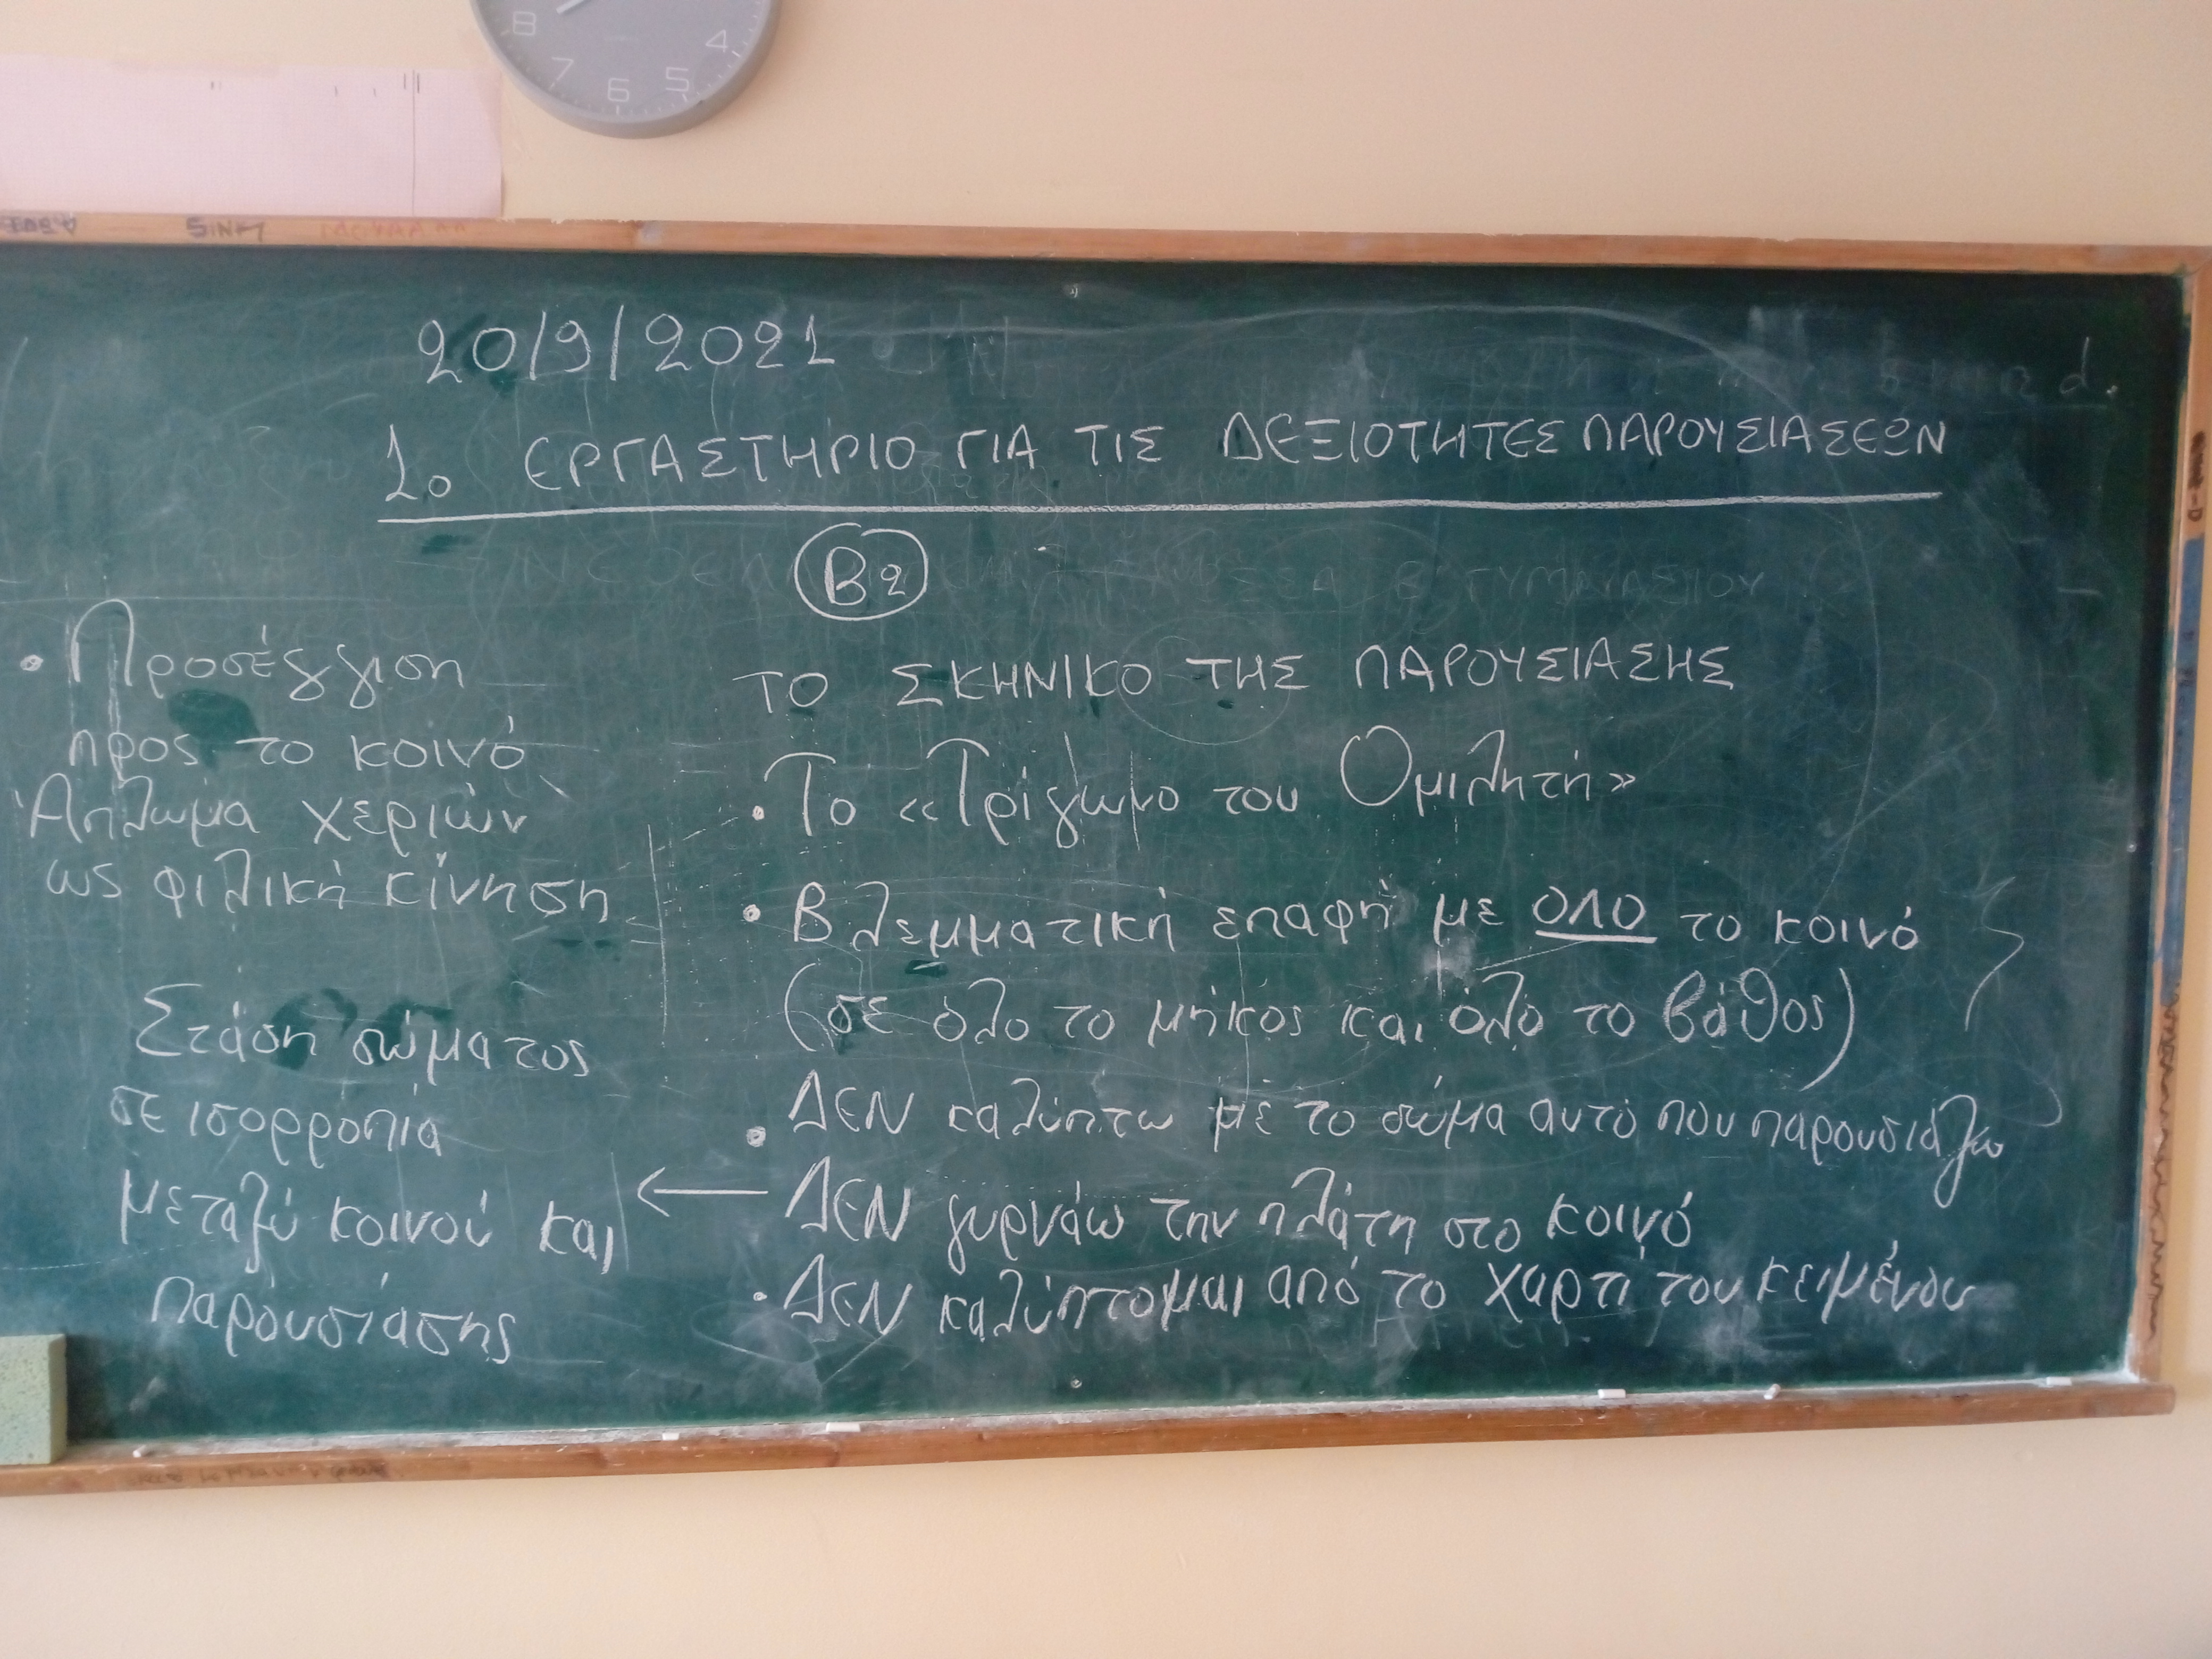 8 7 6 5 4
SiNFI
20/9/2021
1ο ΕΡΓΑΣΤΗΡΙΟ ΓΙΑ ΤΙΣ ΔΕΞΙΟΤΗΤΕΣ ΠΑΡΟΥΣΙΑΣΕΩΝ
Β2
ΤΟ ΣΚΗΝΙΚΟ ΤΗΣ ΠΑΡΟΥΣΙΑΣΗΣ
• Το «Τρίγωνο του Ομιλητή»
• Βλεμματική επαφή με ΟΛΟ το κοινό
(σε όλο το μήκος και όλο το βάθος)
• ΔΕΝ καλύπτω με το σώμα αυτό που παρουσιάζω
← ΔΕΝ γυρνάω την πλάτη στο κοινό
• ΔΕΝ καλύπτομαι από το χαρτί του κειμένου
• Προσέγγιση
προς το κοινό
Άπλωμα χεριών
ως φιλική κίνηση
Στάση σώματος
σε ισορροπία
μεταξύ κοινού και
παρουσίασης